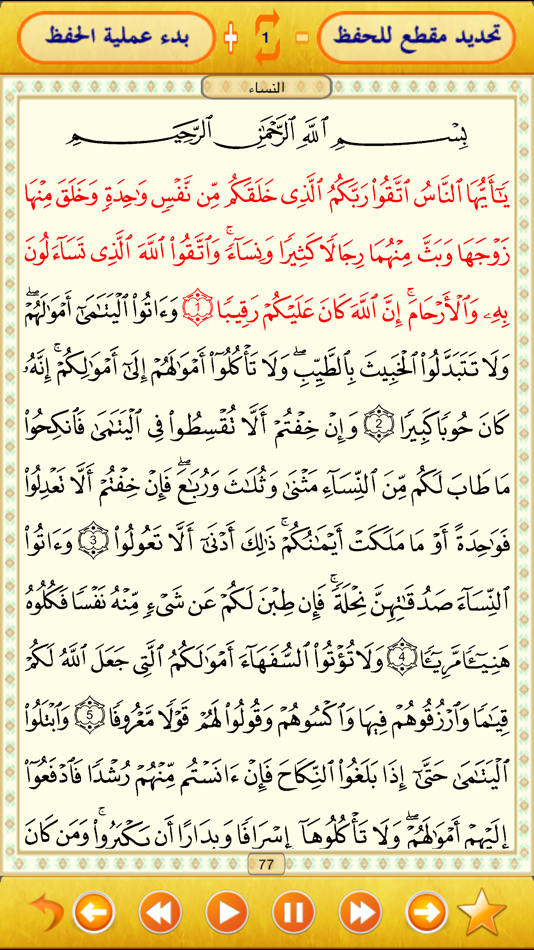 تحديد مقطع للحفظ - 1 + بدء عملية الحفظ
النساء
بِسْمِ ٱللَّهِ ٱلرَّحْمَٰنِ ٱلرَّحِيمِ
يَٰٓأَيُّهَا ٱلنَّاسُ ٱتَّقُوا۟ رَبَّكُمُ ٱلَّذِى خَلَقَكُم مِّن نَّفْسٍ وَٰحِدَةٍ وَخَلَقَ مِنْهَا
زَوْجَهَا وَبَثَّ مِنْهُمَا رِجَالًا كَثِيرًا وَنِسَآءً ۚ وَٱتَّقُوا۟ ٱللَّهَ ٱلَّذِى تَسَآءَلُونَ
بِهِۦ وَٱلْأَرْحَامَ ۚ إِنَّ ٱللَّهَ كَانَ عَلَيْكُمْ رَقِيبًا 1 وَءَاتُوا۟ ٱلْيَتَٰمَىٰٓ أَمْوَٰلَهُمْ ۖ
وَلَا تَتَبَدَّلُوا۟ ٱلْخَبِيثَ بِٱلطَّيِّبِ ۖ وَلَا تَأْكُلُوٓا۟ أَمْوَٰلَهُمْ إِلَىٰٓ أَمْوَٰلِكُمْ ۚ إِنَّهُۥ
كَانَ حُوبًا كَبِيرًا 2 وَإِنْ خِفْتُمْ أَلَّا تُقْسِطُوا۟ فِى ٱلْيَتَٰمَىٰ فَٱنكِحُوا۟
مَا طَابَ لَكُم مِّنَ ٱلنِّسَآءِ مَثْنَىٰ وَثُلَٰثَ وَرُبَٰعَ ۖ فَإِنْ خِفْتُمْ أَلَّا تَعْدِلُوا۟
فَوَٰحِدَةً أَوْ مَا مَلَكَتْ أَيْمَٰنُكُمْ ۚ ذَٰلِكَ أَدْنَىٰٓ أَلَّا تَعُولُوا۟ 3 وَءَاتُوا۟
ٱلنِّسَآءَ صَدُقَٰتِهِنَّ نِحْلَةً ۚ فَإِن طِبْنَ لَكُمْ عَن شَىْءٍ مِّنْهُ نَفْسًا فَكُلُوهُ
هَنِيٓـًٔا مَّرِيٓـًٔا 4 وَلَا تُؤْتُوا۟ ٱلسُّفَهَآءَ أَمْوَٰلَكُمُ ٱلَّتِى جَعَلَ ٱللَّهُ لَكُمْ
قِيَٰمًا وَٱرْزُقُوهُمْ فِيهَا وَٱكْسُوهُمْ وَقُولُوا۟ لَهُمْ قَوْلًا مَّعْرُوفًا 5 وَٱبْتَلُوا۟
ٱلْيَتَٰمَىٰ حَتَّىٰٓ إِذَا بَلَغُوا۟ ٱلنِّكَاحَ فَإِنْ ءَانَسْتُم مِّنْهُمْ رُشْدًا فَٱدْفَعُوٓا۟
إِلَيْهِمْ أَمْوَٰلَهُمْ ۖ وَلَا تَأْكُلُوهَآ إِسْرَافًا وَبِدَارًا أَن يَكْبَرُوا۟ ۚ وَمَن كَانَ
77